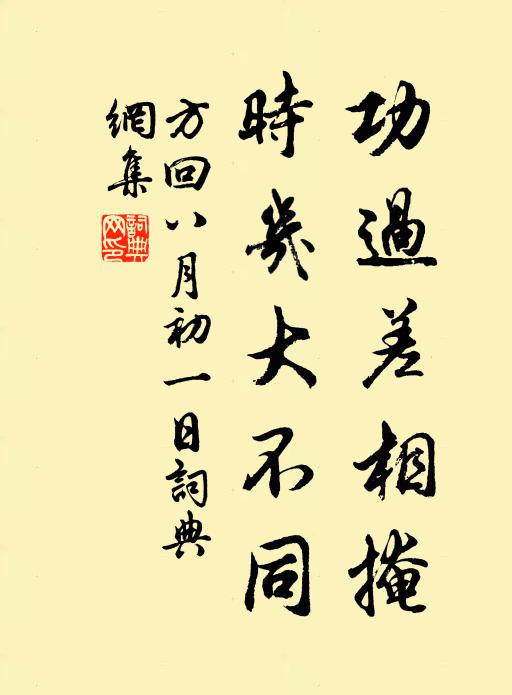 功過差相掩
時幾大不同
方回八月初一日詞典
網集
詞典網印